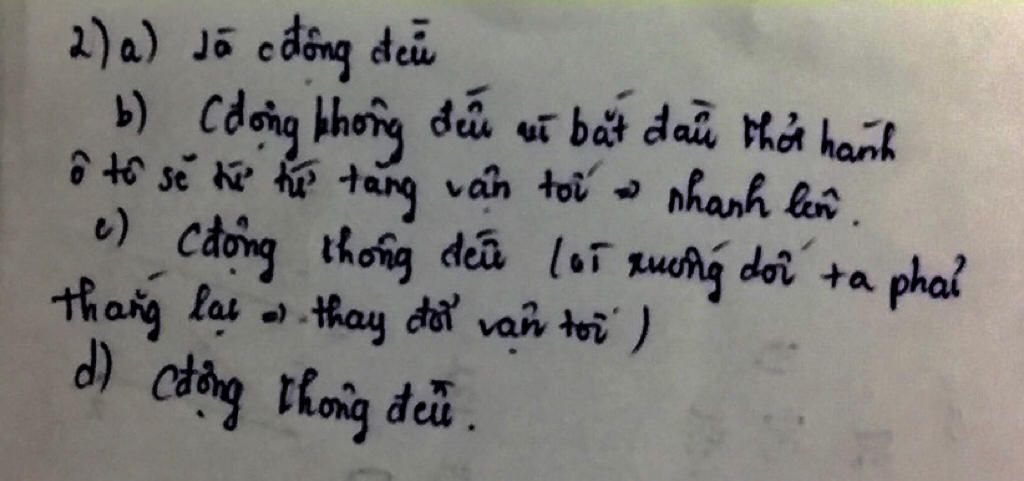 2) a) Là cđộng đều
b) Cđộng không đều vì bắt đầu khởi hành
ô tô sẽ từ từ tăng vận tốc => nhanh lên.
c) Cđộng không đều (vì xuống dốc ta phải
thắng lại => thay đổi vận tốc)
d) Cđộng không đều.